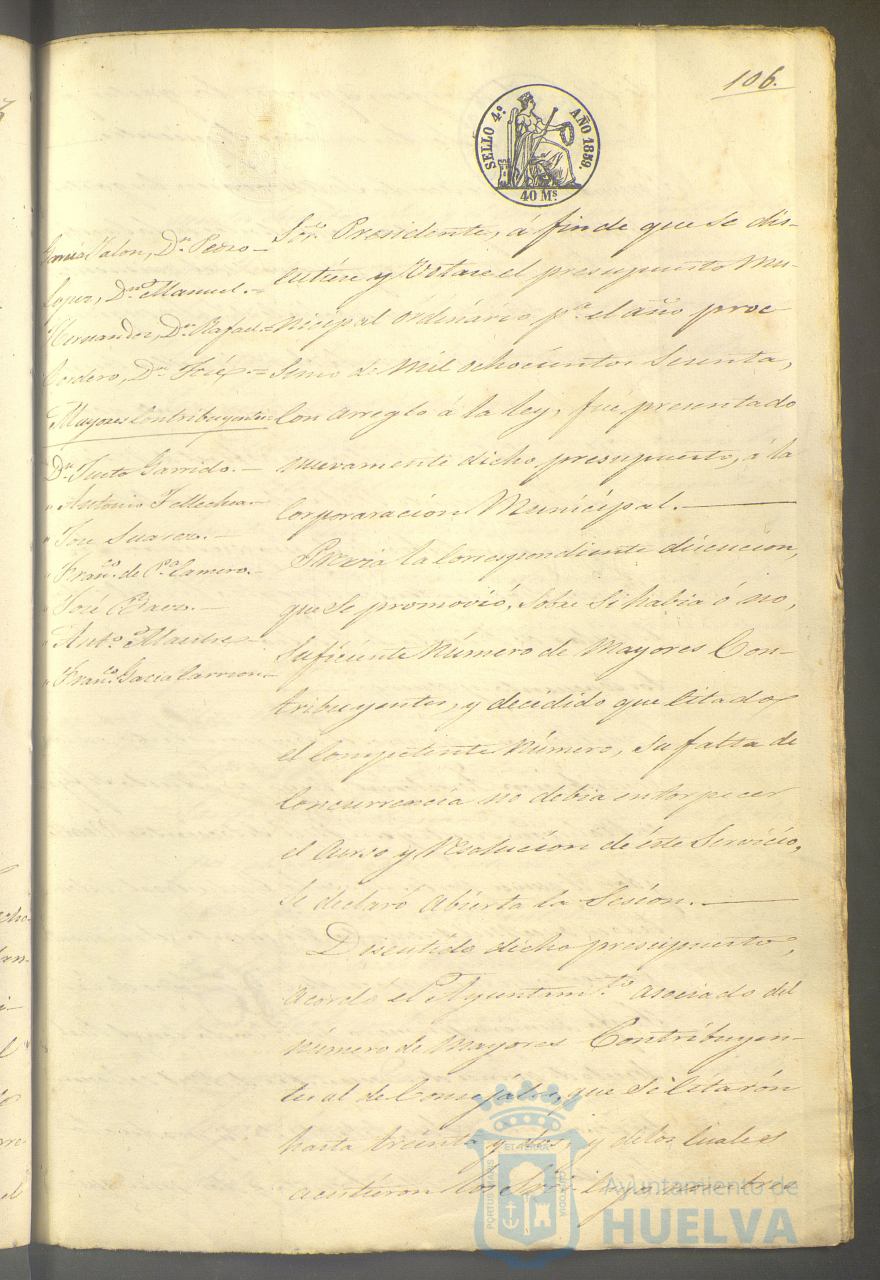 106.
SELLO 4º AÑO 1859.
40 Ms.
Garcia Jalon, Dn. Pedro =
Lopez, Dn. Manuel. =
Hernandez, Dn. Rafael =
Cordero, Dn. José =
Mayores Contribuyentes
Dn. Justo Garrido. —
" Antonio Tellechea —
" José Suarez. —
" Franco. de Pa. Camero. —
" José Baez. —
" Anto. Maestre
" Franco. Gacia Carrion —
Sor. Presidente, á fin de que se dis-
cutiese y Votase el presupuesto Mu-
nicipal Ordinário pa. el año proc
simo de Mil Ochocientos Sesenta,
Con arreglo á la ley, fué presentado
nuevamente dicho presupuesto, á la
Corporaracion Municipal. —
Prévia la Correspondiente discucion,
que se promovió, sobre si habia ó no,
Suficiente Número de Mayores Con-
tribuyentes, y decidido que Citados
el Competente Número, su falta de
Concurrencia no debia entorpecer
el Curso y Resolucion de éste Servicio,
se declaró abierta la Sesion. —
Discutido dicho presupuesto,
acordó el Ayuntamto. asociado del
número de Mayores Contribuyen-
tes al de Concejáles, que se Citarón
hasta treinta y dos, y de los Cuales
acistieron los Sres.
Ayuntamiento de
HUELVA